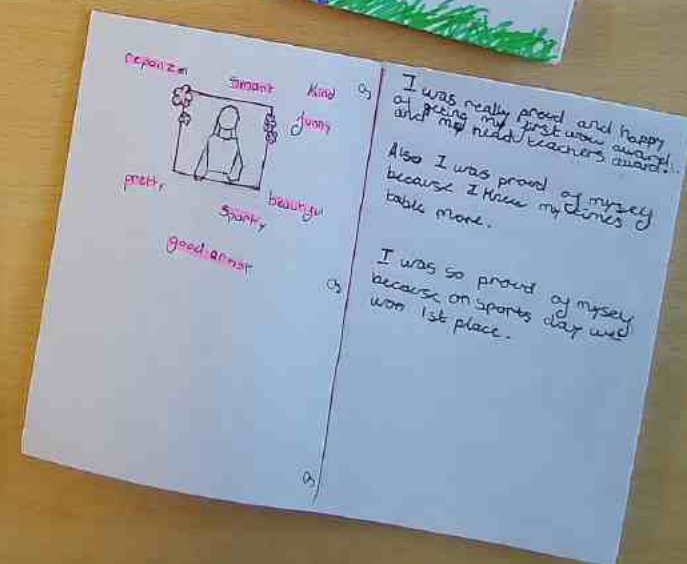 smart
Kind
funny
pretty
beautiful
Sporty
good artist
I was really proud and happy
of geting my first wow award
and my head teachers award.
Also I was proud of myself
because I knew my times
table more.
I was so proud of myself
because on sports day we
won 1st place.